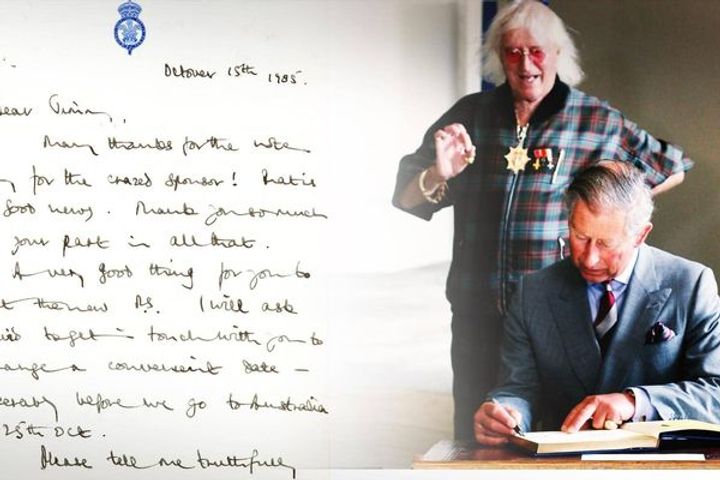 October 15th 1985.
ear Jimmy,
Many thanks for the note
for the crazed sponsor! That is
good news. Thank you so much
your part in all that.
A very good thing for you to
t the new P.S. I will ask
to get in touch with you to
range a convenient date –
erably before we go to Australia
25th Oct.
Please tell me truthfully